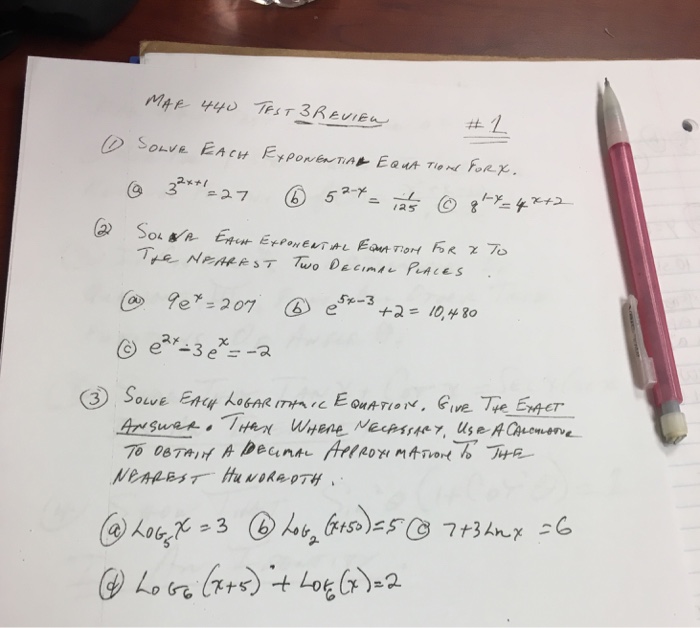 MAE 440 TEST 3 REVIEW #1
① SOLVE EACH EXPONENTIAL EQUATION FOR X.
ⓐ 3^{2x+1} = 27 ⓑ 5^{2-x} = 1/125 ⓒ 8^{1-x} = 4^{x+2}
② SOLVE EACH EXPONENTIAL EQUATION FOR x TO
THE NEAREST TWO DECIMAL PLACES
ⓐ 9e^x = 207 ⓑ e^{5x-3} + 2 = 10,480
ⓒ e^{2x} - 3e^x = -2
③ SOLVE EACH LOGARITHMIC EQUATION. GIVE THE EXACT
ANSWER. THEN WHERE NECESSARY, USE A CALCULATOR
TO OBTAIN A DECIMAL APPROXIMATION TO THE
NEAREST HUNDREDTH.
ⓐ LOG_5 X = 3 ⓑ LOG_2 (x+50) = 5 ⓒ 7+3 Ln x = 6
ⓓ LOG_6 (x+5) + LOG_6 (x) = 2